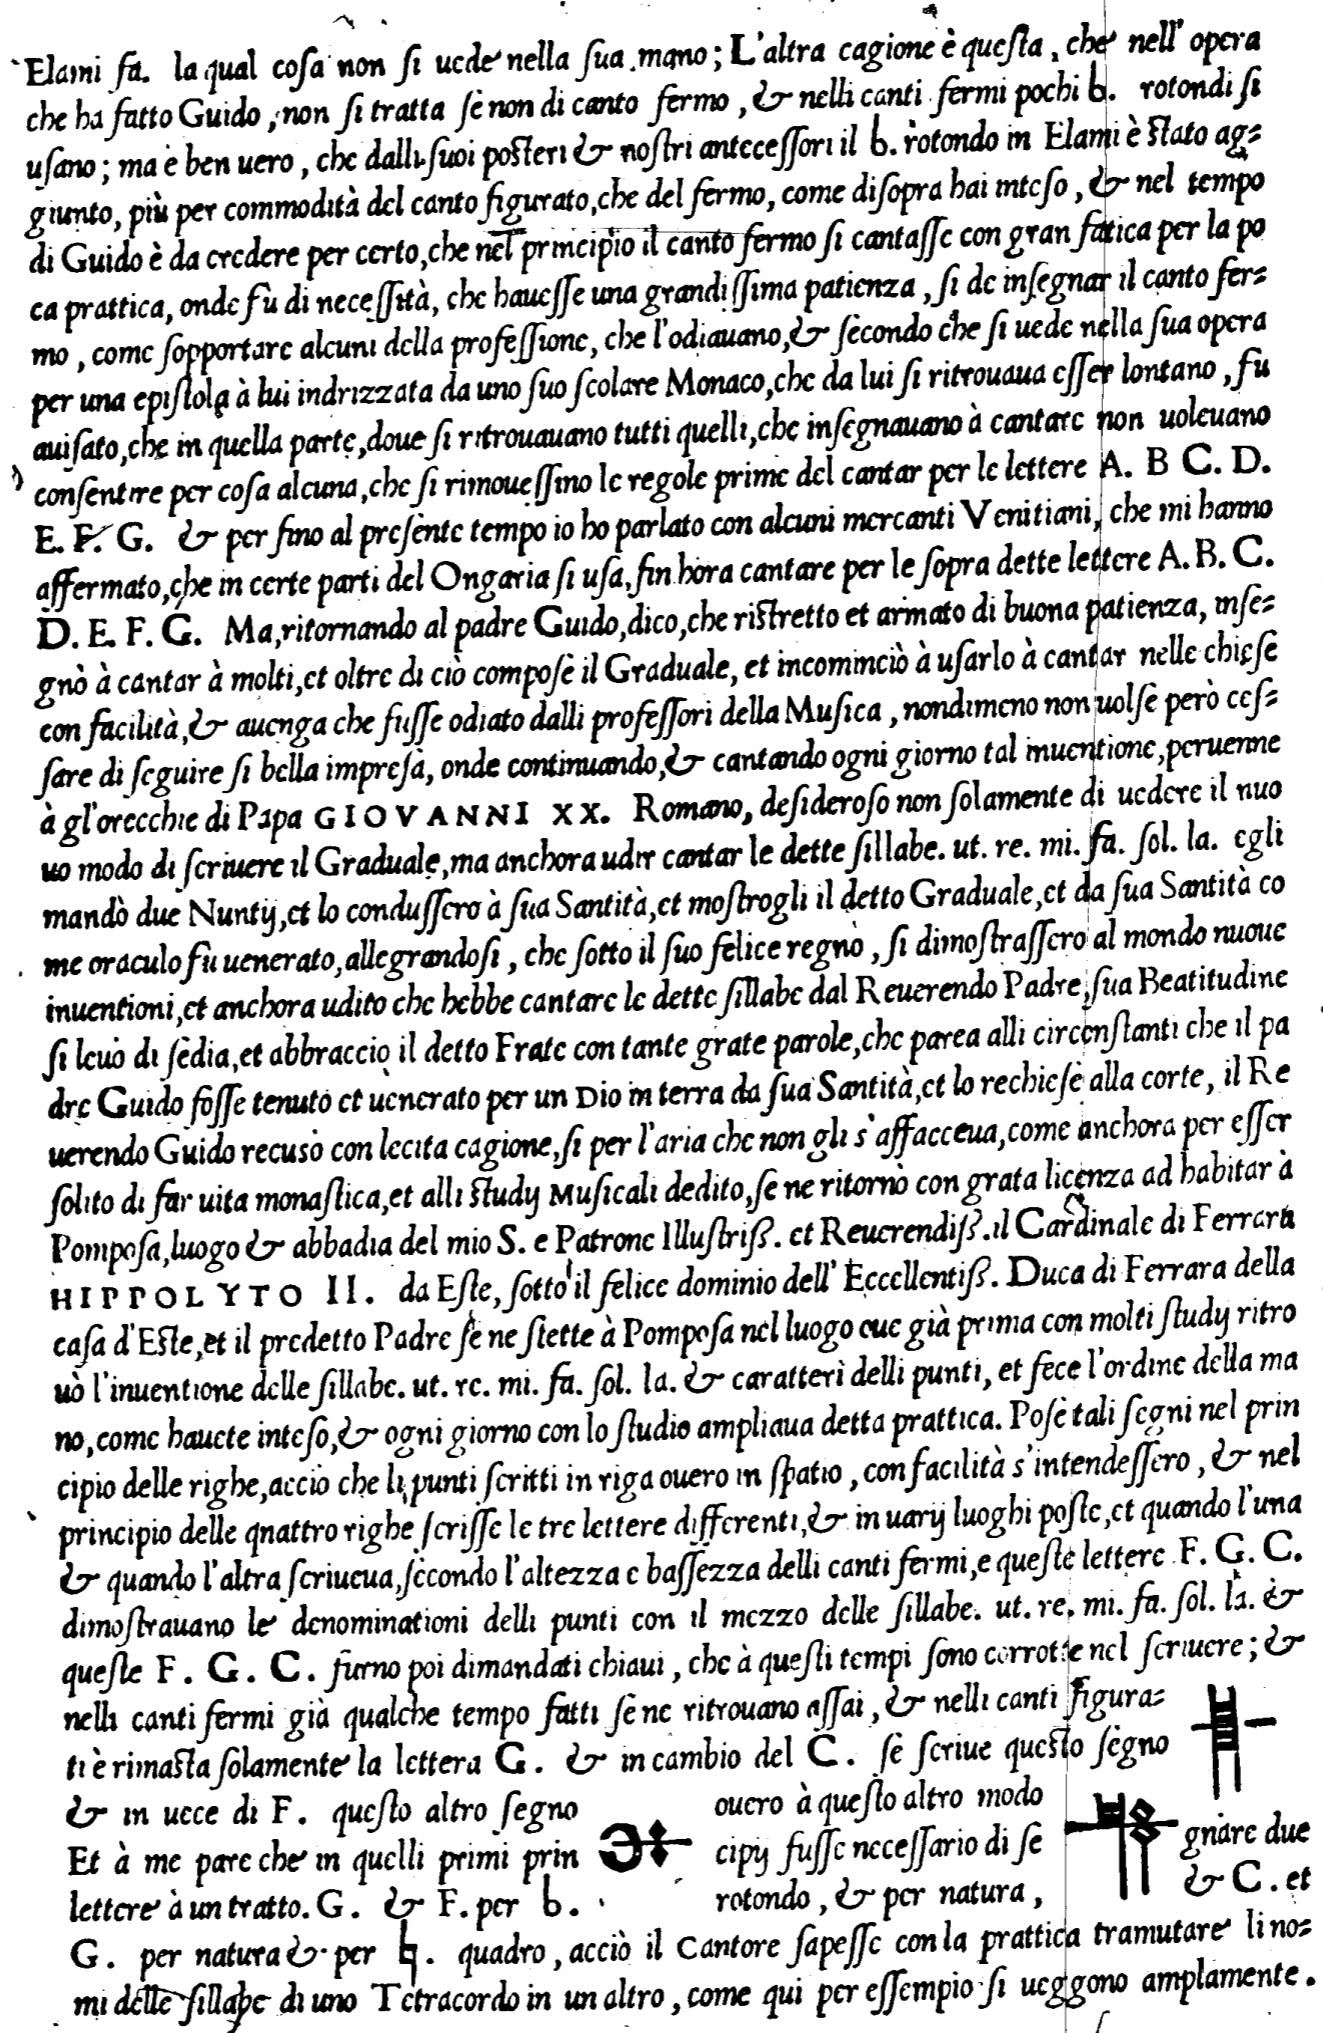 Elami fa. la qual cosa non si uede nella sua mano; L'altra cagione è questa, che nell' opera
che ha fatto Guido, non si tratta se non di canto fermo, & nelli canti fermi pochi b. rotondi si
usano; ma è ben uero, che dalli suoi posteri & nostri antecessori il b. rotondo in Elami è stato ag=
giunto, più per commodità del canto figurato, che del fermo, come disopra hai inteso, & nel tempo
di Guido è da credere per certo, che nel principio il canto fermo si cantasse con gran fatica per la po
ca prattica, onde fù di necessità, che hauesse una grandissima patienza, si de insegnar il canto fer=
mo, come sopportare alcuni della professione, che l'odiauano, & secondo che si uede nella sua opera
per una epistola à lui indrizzata da uno suo scolare Monaco, che da lui si ritrouaua esser lontano, fu
auisato, che in quella parte, doue si ritrouauano tutti quelli, che insegnauano à cantare non uoleuano
consentire per cosa alcuna, che si rimouessino le regole prime del cantar per le lettere A. B C. D.
E. F. G. & per fino al presente tempo io ho parlato con alcuni mercanti Venitiani, che mi hanno
affermato, che in certe parti del Ongaria si usa, fin hora cantare per le sopra dette lettere A. B. C.
D. E. F. G. Ma, ritornando al padre Guido, dico, che ristretto et armato di buona patienza, inse=
gnò à cantar à molti, et oltre di ciò compose il Graduale, et incominciò à usarlo à cantar nelle chiese
con facilità, & auenga che fusse odiato dalli professori della Musica, nondimeno non uolse però ces=
sare di seguire si bella impresa, onde continuando, & cantando ogni giorno tal inuentione, peruenne
à gl'orecchie di Papa GIOVANNI XX. Romano, desideroso non solamente di uedere il nuo
uo modo di scriuere il Graduale, ma anchora udir cantar le dette sillabe. ut. re. mi. fa. sol. la. egli
mandò due Nuntij, et lo condussero à sua Santità, et mostrogli il detto Graduale, et da sua Santità co
me oraculo fu uenerato, allegrandosi, che sotto il suo felice regno, si dimostrassero al mondo nuoue
inuentioni, et anchora udito che hebbe cantare le dette sillabe dal Reuerendo Padre, sua Beatitudine
si leuò di sedia, et abbracciò il detto Frate con tante grate parole, che parea alli circonstanti che il pa
dre Guido fosse tenuto et uenerato per un Dio in terra da sua Santità, et lo rechiese alla corte, il Re
uerendo Guido recusò con lecita cagione, si per l'aria che non gli s'affacceua, come anchora per esser
solito di far uita monastica, et alli study Musicali dedito, se ne ritornò con grata licenza ad habitar à
Pomposa, luogo & abbadia del mio S. e Patrone Illustriss. et Reuerendiss. il Cardinale di Ferrara
HIPPOLYTO II. da Este, sotto il felice dominio dell' Eccellentiss. Duca di Ferrara della
casa d'Este, et il predetto Padre se ne stette à Pomposa nel luogo oue già prima con molti study ritro
uò l'inuentione delle sillabe. ut. re. mi. fa. sol. la. & caratteri delli punti, et fece l'ordine della ma
no, come hauete inteso, & ogni giorno con lo studio ampliaua detta prattica. Pose tali segni nel prin
cipio delle righe, acciò che li punti scritti in riga ouero in spatio, con facilità s'intendessero, & nel
principio delle qnattro righe scrisse le tre lettere differenti, & in uarij luoghi poste, et quando l'una
& quando l'altra scriueua, secondo l'altezza e bassezza delli canti fermi, e queste lettere F. G. C.
dimostrauano le denominationi delli punti con il mezzo delle sillabe. ut. re. mi. fa. sol. la. &
queste F. G. C. furno poi dimandati chiaui, che à questi tempi sono corrotte nel scriuere; &
nelli canti fermi già qualche tempo fatti se ne ritrouano assai, & nelli canti figura=
ti è rimasta solamente la lettera G. & in cambio del C. se scriue questo segno
& in uece di F. questo altro segno ouero à questo altro modo
Et à me pare che in quelli primi prin cipij fusse necessario di se gnare due
lettere à un tratto. G. & F. per b. rotondo, & per natura, & C. et
G. per natura & per ♮. quadro, acciò il Cantore sapesse con la prattica tramutare li no=
mi delle sillabe di uno Tetracordo in un altro, come qui per essempio si ueggono amplamente.